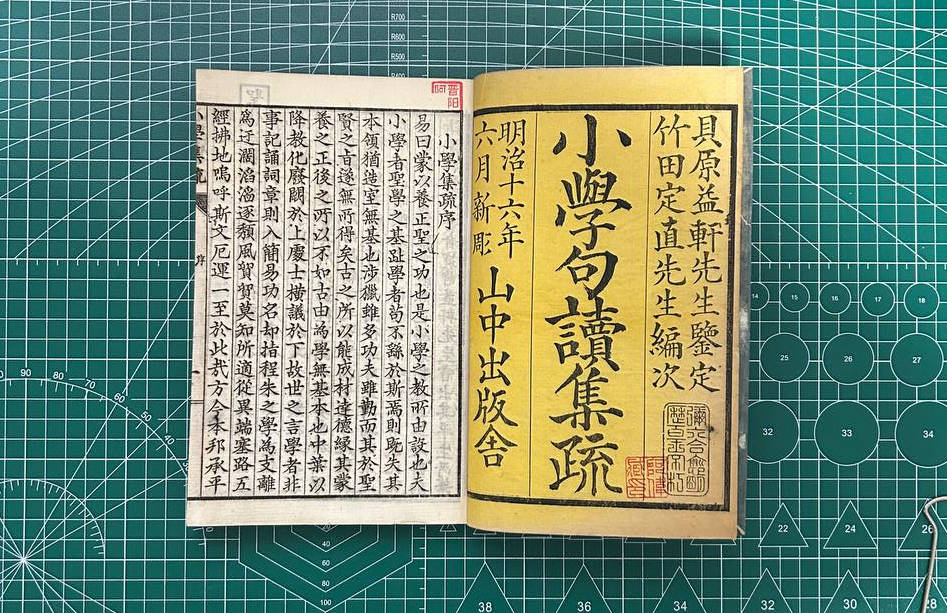 貝原益軒先生鑒定
竹田定直先生編次
小學句讀集疏
明治十六年
六月新彫
山中出版舍
小學集疏序
易曰蒙以養正聖之功也是小學之教所由設也夫
小學者聖學之基趾學者苟不繇於斯焉則既失其
本領猶造室無基也涉獵雖多功夫雖勤而其於聖
賢之旨遂無所得矣古之所以能成材達德緣其蒙
養之正後之所以不如古由為學無基本也中葉以
降教化廢闕於上處士橫議於下故世之言學者非
事記誦詞章則入簡易功名却指程朱之學為支離
為迂濶滔滔逐頽風貿貿莫知所適從異端塞路五
經拂地嗚呼斯文厄運一至於此哉方今本邦承平
R700
R600
R500
R400
14
15
16
17
18
25
26
27
32
33
34
22
24
26
38
36
34
32
30
28
90
80
70
60
50
40